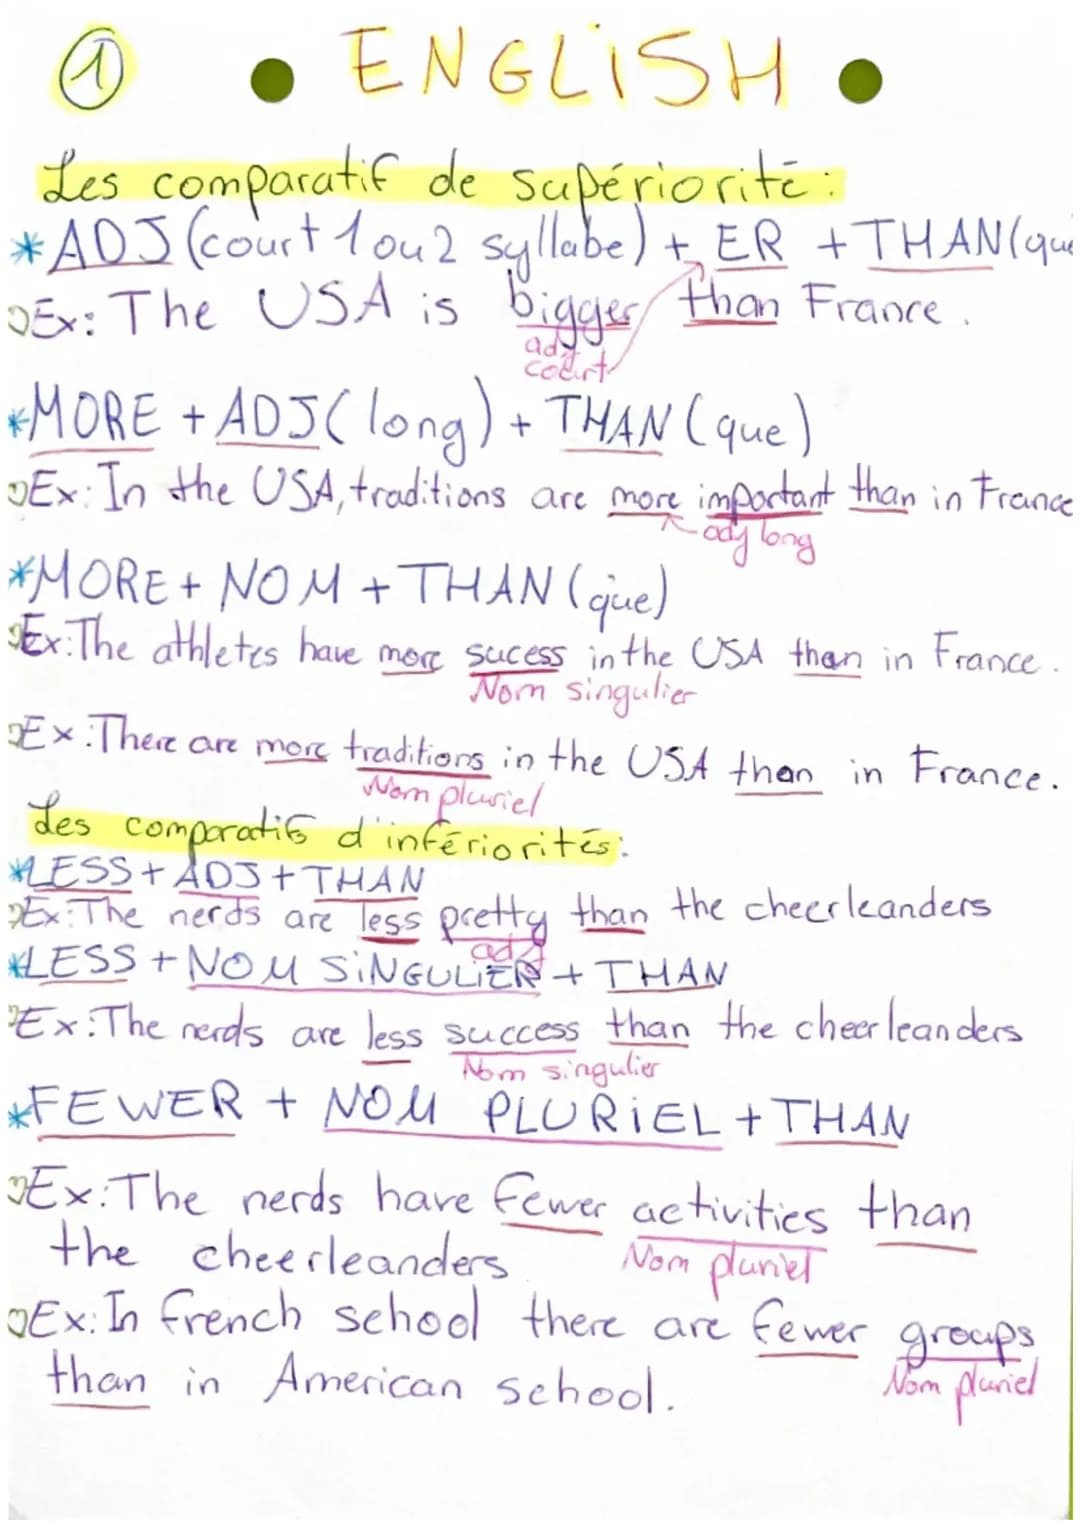 ① • ENGLISH •
Les comparatif de supériorité :
*ADJ (court 1 ou 2 syllabe) + ER + THAN (que
Ex: The USA is bigger than France.
adj
court
*MORE + ADJ (long) + THAN (que)
Ex: In the USA, traditions are more important than in France
adj long
*MORE + NOM + THAN (que)
Ex: The athletes have more sucess in the USA than in France.
Nom singulier
Ex: There are more traditions in the USA than in France.
Nom pluriel
Les comparatifs d'infériorités:
*LESS + ADJ + THAN
Ex: The nerds are less pretty than the cheerleanders
adj
*LESS + NOM SINGULIER + THAN
Ex: The nerds are less success than the cheerleanders
Nom singulier
*FEWER + NOM PLURIEL + THAN
Ex: The nerds have fewer activities than
the cheerleanders
Nom pluriel
Ex: In french school there are fewer groups
than in American school.
Nom pluriel